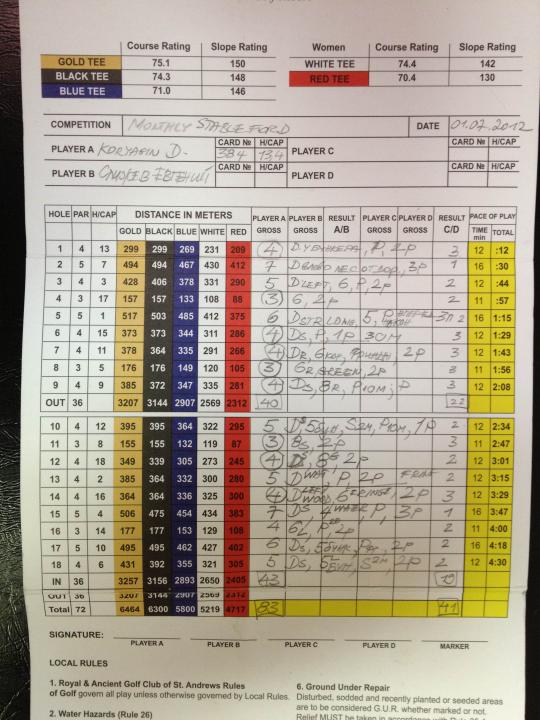 Course Rating Slope Rating Women Course Rating Slope Rating
GOLD TEE 75.1 150 WHITE TEE 74.4 142
BLACK TEE 74.3 148 RED TEE 70.4 130
BLUE TEE 71.0 146
COMPETITION MONTHLY STABLEFORD DATE 01.07.2012
PLAYER A KORYAGIN D. CARD № 384 H/CAP 13,4 PLAYER C CARD № H/CAP
PLAYER B CARD № H/CAP PLAYER D CARD № H/CAP
HOLE PAR H/CAP DISTANCE IN METERS PLAYER A PLAYER B RESULT PLAYER C PLAYER D RESULT PACE OF PLAY
GOLD BLACK BLUE WHITE RED GROSS GROSS A/B GROSS GROSS C/D TIME min TOTAL
1 4 13 299 299 269 231 209 4 P, 2p 3 12 :12
2 5 7 494 494 467 430 412 7 3p 1 16 :30
3 4 3 428 406 378 331 290 5 D LEFT, 6, P, 2p 2 12 :44
4 3 17 157 157 133 108 88 3 6, 2p 2 11 :57
5 5 1 517 503 485 412 375 6 DSTR LONG, 5, P 3п 2 16 1:15
6 4 15 373 373 344 311 286 4 Ds, P, 1p 30M 3 12 1:29
7 4 11 378 364 335 291 266 4 2p 3 12 1:43
8 3 5 176 176 149 120 105 3 6R, GREEN, 2p 3 11 1:56
9 4 9 385 372 347 335 281 4 Ds, 8R, P10M, P 3 12 2:08
OUT 36 3207 3144 2907 2569 2312 40 22
10 4 12 395 395 364 322 295 5 P10M, 1p 2 12 2:34
11 3 8 155 155 132 119 87 3 8s, 2p 3 11 2:47
12 4 18 349 339 305 273 245 4 2p 2 12 3:01
13 4 2 385 364 332 300 280 5 P, 2p 2 12 3:15
14 4 16 364 364 336 325 300 4 D LEFT WOOD, 6 FRINGE, 2p 3 12 3:29
15 5 4 506 475 454 434 383 7 DS 4 WATER, P, 3p 1 16 3:47
16 3 14 177 177 153 129 108 4 6L, 2p 2 11 4:00
17 5 10 495 495 462 427 402 6 2p 2 16 4:18
18 4 6 431 392 355 321 305 5 2p 2 12 4:30
IN 36 3257 3156 2893 2650 2405 43 19
OUT 36 3207 3144 2907 2569 2312
Total 72 6464 6300 5800 5219 4717 83 41
SIGNATURE:
PLAYER A PLAYER B PLAYER C PLAYER D MARKER
LOCAL RULES
1. Royal & Ancient Golf Club of St. Andrews Rules
of Golf govern all play unless otherwise governed by Local Rules.
2. Water Hazards (Rule 26)
6. Ground Under Repair
Disturbed, sodded and recently planted or seeded areas
are to be considered G.U.R. whether marked or not.
Relief MUST be taken in accordance with